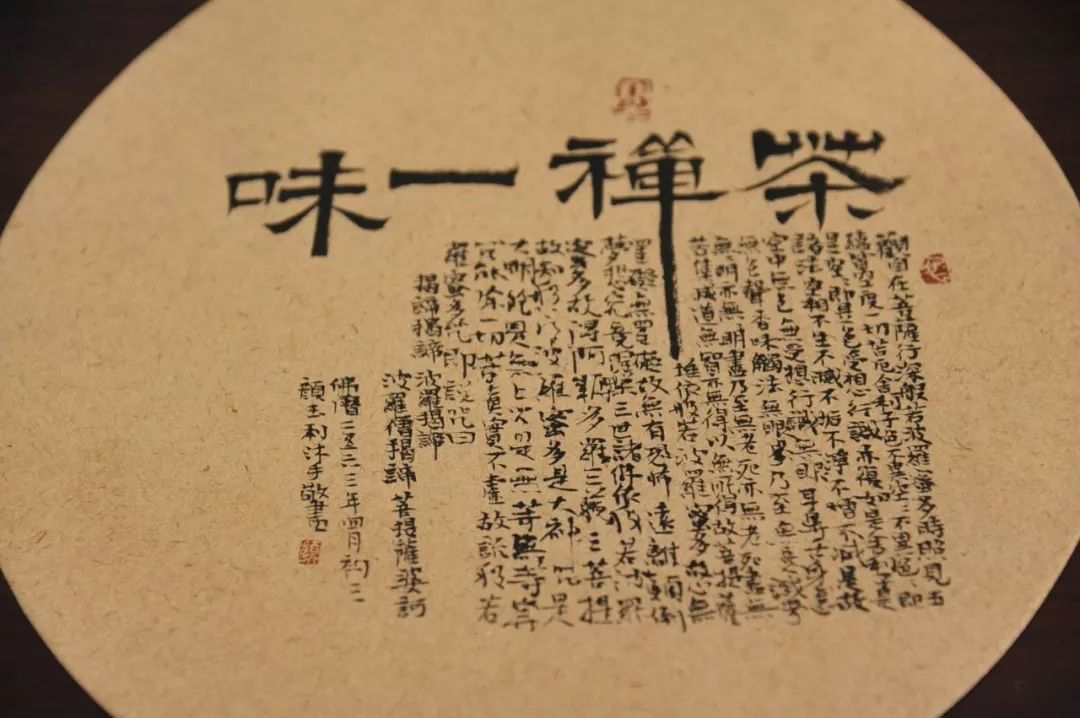 茶禪一味
觀自在菩薩行深般若波羅蜜多時照見五
蘊皆空度一切苦厄舍利子色不異空空不異色色即
是空空即是色受想行識亦復如是舍利子是
諸法空相不生不滅不垢不淨不增不減是故
空中無色無受想行識無眼耳鼻舌身意
無色聲香味觸法無眼界乃至無意識界
無無明亦無無明盡乃至無老死亦無老死盡無
苦集滅道無智亦無得以無所得故菩提薩
埵依般若波羅蜜多故心無
罣礙無罣礙故無有恐怖遠離顛倒
夢想究竟涅槃三世諸佛依般若波羅
蜜多故得阿耨多羅三藐三菩提
故知般若波羅蜜多是大神咒是
大明咒是無上咒是無等無等等
咒能除一切苦真實不虛故說般若
羅蜜多咒即說咒曰
揭諦揭諦 波羅揭諦
波羅僧揭諦 菩提薩婆訶
佛曆二五三三年四月初二
顏玉利沐手敬書